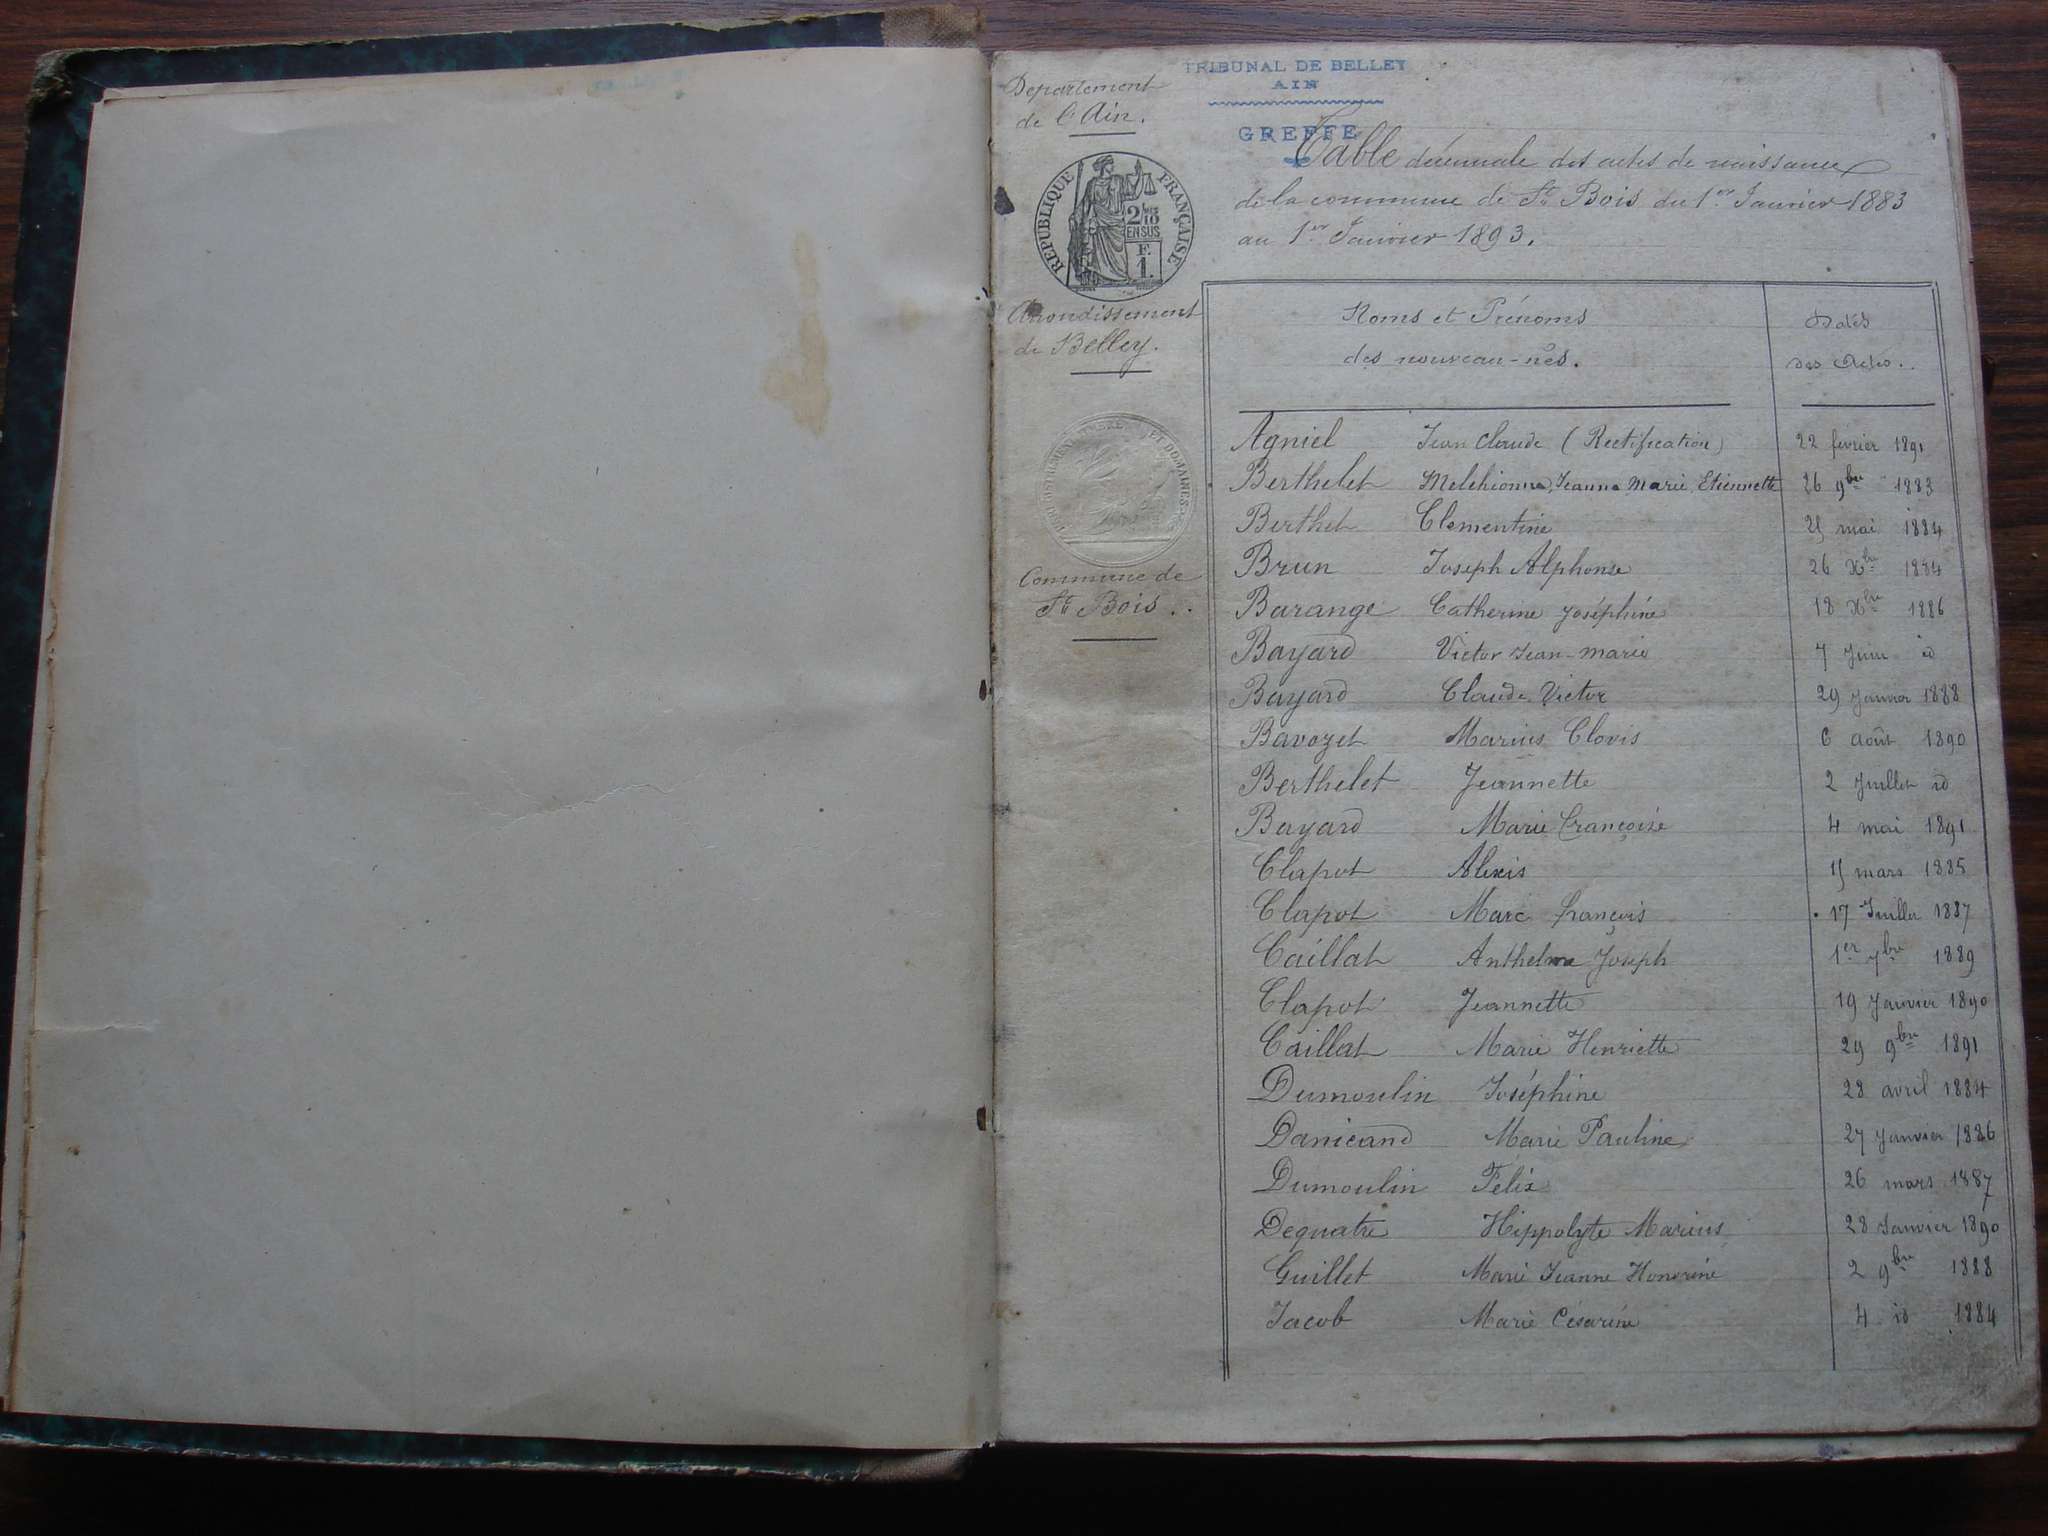 TRIBUNAL DE BELLEY
AIN
GREFFE
Département
de l'Ain.
RÉPUBLIQUE FRANÇAISE
2/10
EN SUS
F.
1.
Arrondissement
de Belley.
ET DOMAINES
Commune de
St Bois.
Table décennale des actes de naissance
de la commune de St Bois du 1er Janvier 1883
au 1er Janvier 1893.
Noms et Prénoms des nouveau-nés. Dates des Actes.
Agniel Jean Claude (Rectification) 22 février 1891
Berthelet Melchionne, Jeanne Marie Etiennette 26 9bre 1883
Berthet Clementine 25 mai 1884
Brun Joseph Alphonse 26 Xbre 1884
Barange Catherine Joséphine 18 Xbre 1886
Bayard Victor Jean-marie 7 Juin id
Bayard Claude Victor 29 Janvier 1888
Bavozet Marius Clovis 6 août 1890
Berthelet Jeannette 2 Juillet id
Bayard Marie Françoise 4 mai 1891
Clapot Alexis 15 mars 1885
Clapot Marc françois 17 Juillet 1887
Caillat Anthelme Joseph 1er 7bre 1889
Clapot Jeannette 19 Janvier 1890
Caillat Marie Henriette 29 9bre 1891
Dumoulin Joséphine 28 avril 1884
Danicand Marie Pauline 27 Janvier 1886
Dumoulin Félix 26 mars 1887
Dequatre Hippolyte Marius 28 Janvier 1890
Guillet Marie Jeanne Honorine 2 9bre 1888
Jacob Marie Césarine 4 id 1884